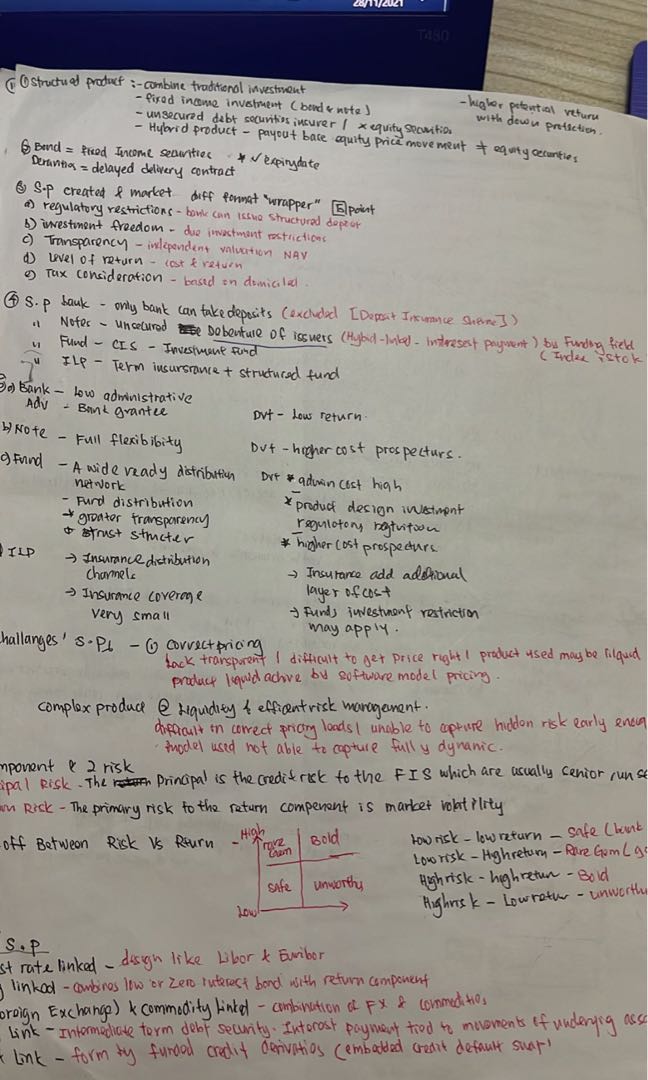 28/11/2021
T480
① ① Structual product :- combine traditional investment
- fixed income investment (bond & note)
- unsecured debt securities insurer / x equity securities
- Hybrid product - payout base equity price movement ≠ equity securities
- higher potential return
with down protection.
② Bond = fixed Income securities * ✓ expiry date
= delayed delivery contract
③ S.p created & market diff format "wrapper" [5] point
a) regulatory restrictions - bank can issue structured deposit
b) investment freedom - due investment restrictions
c) Transparency - independent valuation NAV
d) Level of return - cost & return
e) Tax consideration - based on domiciled.
④ S.p bank - only bank can take deposits (excluded [Deposit Insurance Sheme])
" Notes - unsecured Debenture of issuers (Hybid-linked - interesest payment) by Funding field
" Fund - CIS - Investment fund (Index, stok
" ILP - Term insursrance + structured fund
a) Bank - Low administrative
Adv - Bank grantee Dvt - Low return.
b) Note - Full flexibibity Dvt - higher cost prospecturs.
c) Fund - A wide ready distribution Dvt * admin cost high
network
- Fund distribution * product design investment
* greater transparency regulotory
+ trust structer * higher cost prospecturs
ILP → Insurance distribution → Insurance add additional
channels layer of cost
→ Insurance coverage → Funds investment restriction
very small may apply.
hallanges' S.P - ① correct pricing
Lack transparent / difficult to get price right / product used may be
product liquid by software model pricing.
complex produce @ Liquidity & efficent risk management.
difficult in correct pricing leads / unable to capture hidden risk early enoug
model used not able to capture fully dynanic.
mponent & 2 risk
ipal Risk - The Principal is the credit risk to the FIS which are usually senior, unse
rn Risk - The primary risk to the return component is market volatility
off Between Risk Vs Return
High
rare
Gem
Bold
safe
unworthy
Low
Low risk - low return - safe (bank
Low risk - High return - Rare Gem (go
High risk - high retun - Bold
High risk - Low retur - unworth
S.p
st rate linked - design like Libor & Euribor
linked - combines low or zero interest bond with return component
oreign Exchange) & commodity linked - combination of FX & commodities
link - Intermediate term debt security. Interost payment tied to movements of underying asse
link - form by funded credit derivatios (embedded credit default swap)